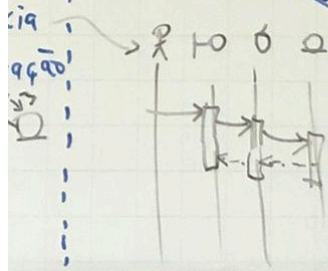 cia
ação